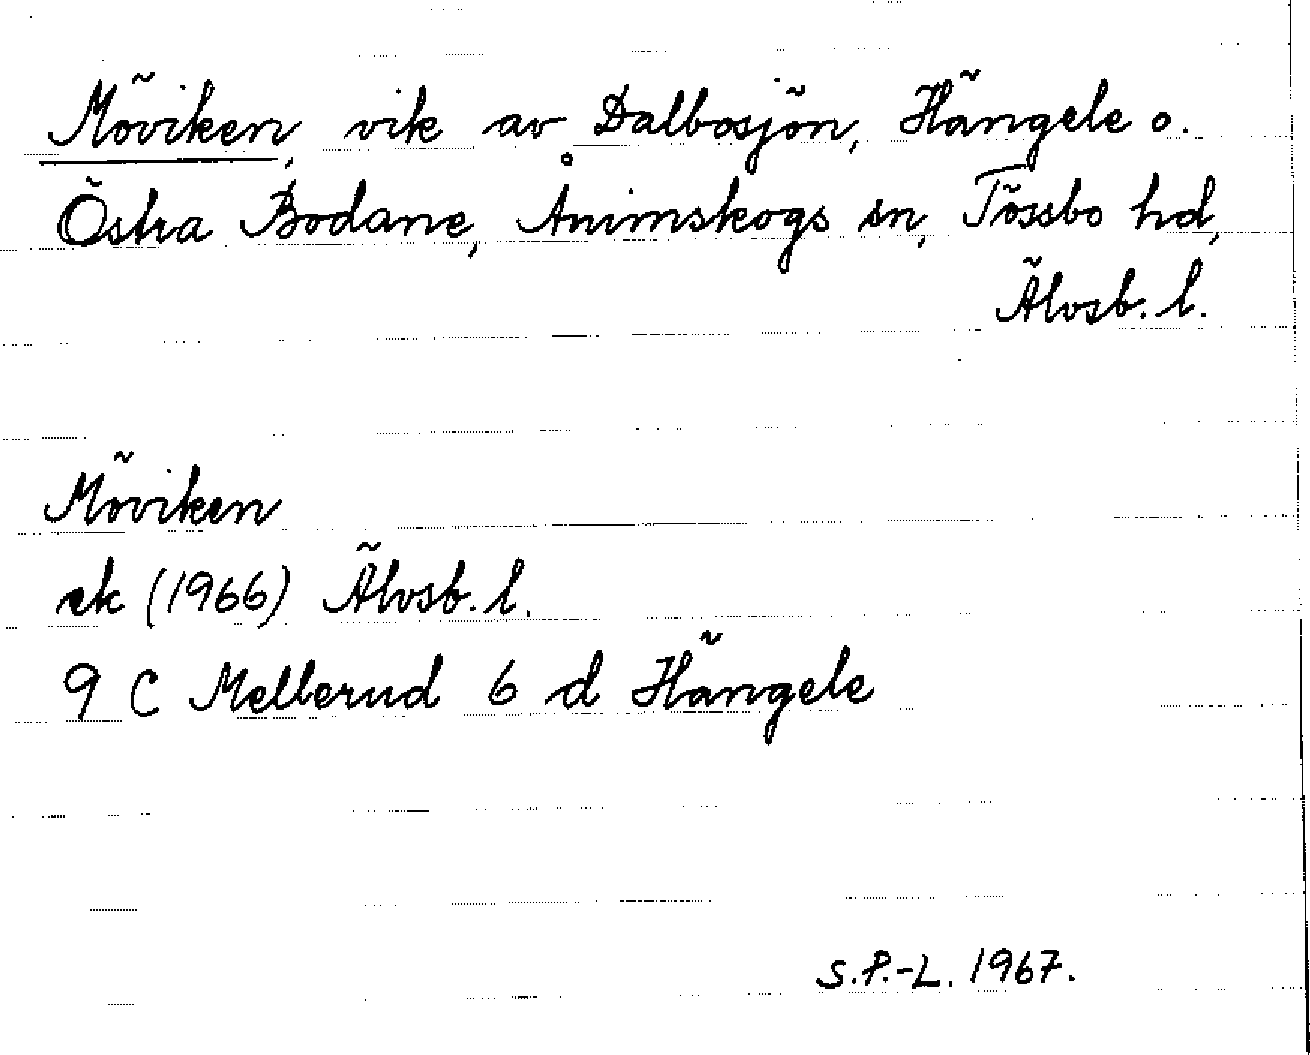 Möviken, vik av Dalbosjön, Hängele o.
Östra Bodane, Ånimskogs sn, Tössbo hd,
Älvsb. l.
Möviken
ek (1966) Älvsb. l.
9 C Mellerud 6 d Hängele
S.P.-L. 1967.